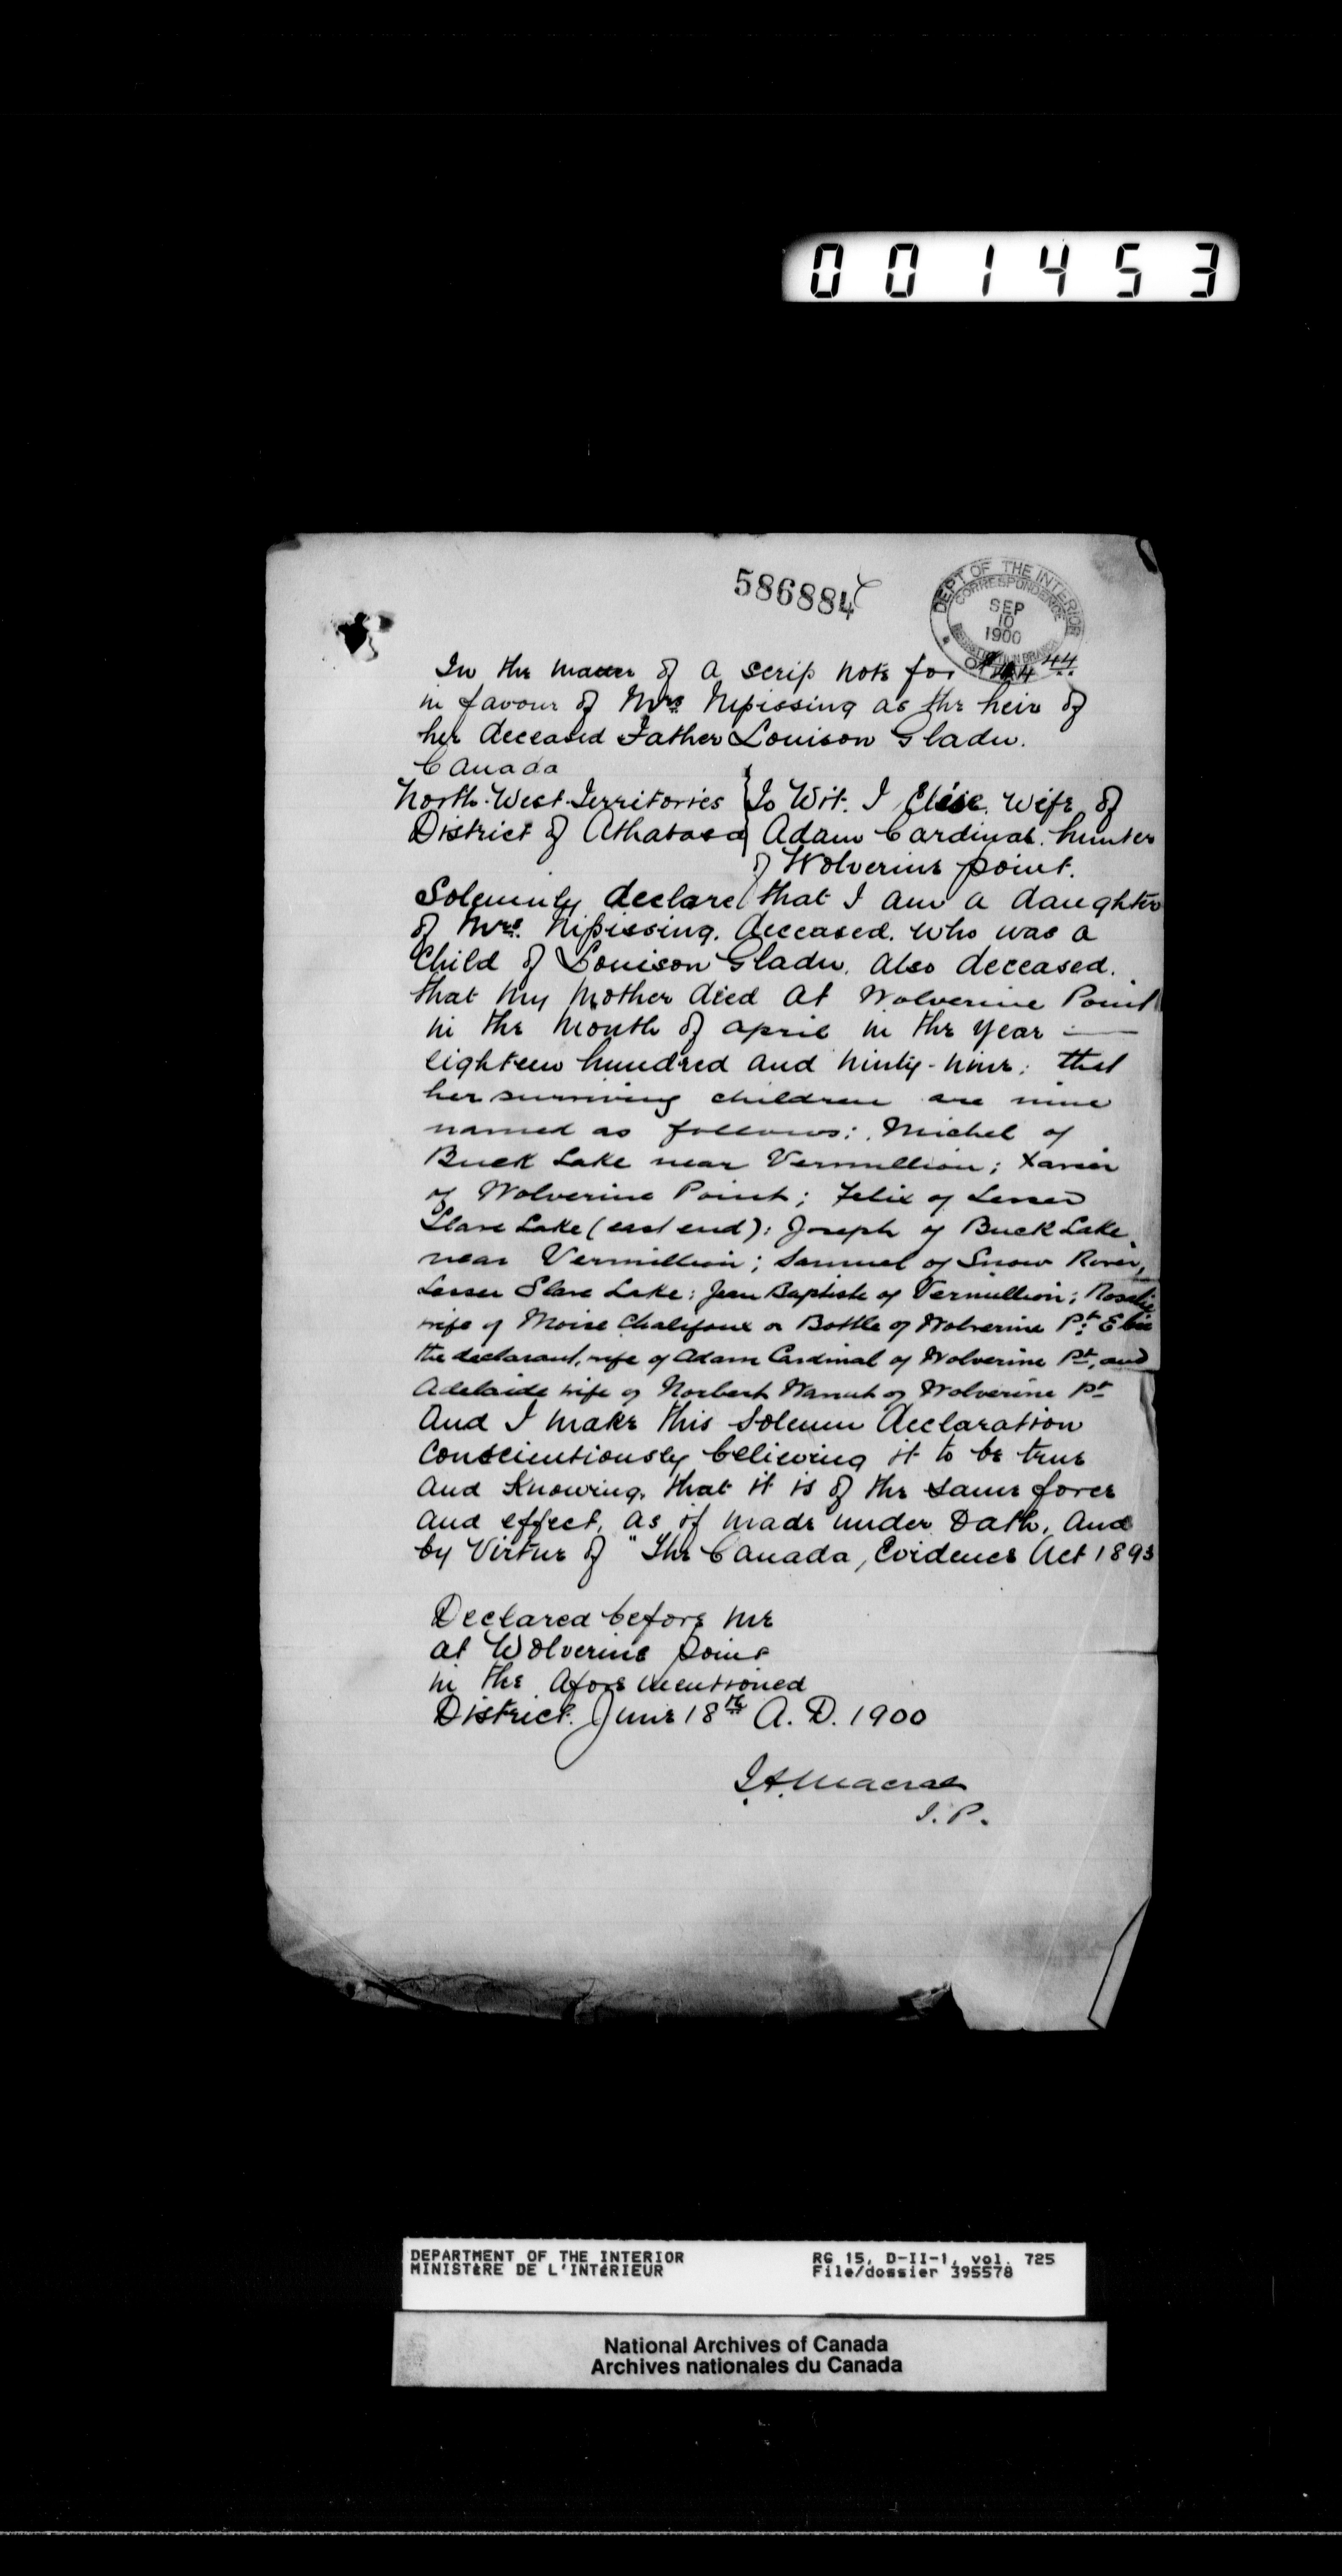 001453
586884
DEPT OF THE INTERIOR
CORRESPONDENCE
SEP
10
1900
In the matter of a scrip note for
in favour of Mrs Nipissing as the heir of
her deceased Father Louison Gladu.
Canada
North-West-Territories } To Wit. I Elise. Wife of
District of Athabasca } Adam Cardinal. hunter
of Wolverine point.
Solemnly declare that I am a daughter
of Mrs. Nipissing. deceased. who was a
Child of Louison Gladu. also deceased.
that my mother died at Wolverine Point
in the month of april in the year
eighteen hundred and ninty-nine: that
her surviving children are nine
named as follows: Michel of
Buck Lake near Vermillion; Xavier
of Wolverine Point; Felix of Lesser
Slave Lake (east end): Joseph of Buck Lake,
near Vermillion; Samuel of Snow River,
Lesser Slave Lake: Jean Baptiste of Vermillion; Rosalie
wife of Moise Chalifoux or Bottle of Wolverine Pt: Elise
the declarant, wife of Adam Cardinal of Wolverine Pt, and
Adelaide wife of Norbert of Wolverine Pt
And I make this Solemn declaration
Conscientiously believing it to be true
and Knowing, that it is of the same force
and effect, as if made under Oath, and
by Virtue of "The Canada, Evidence Act 1893
Declared before me
at Wolverine point
in the afore mentioned
District. June 18th A. D. 1900
J.A. Macrae
J. P.
DEPARTMENT OF THE INTERIOR RG 15, D-II-1, vol. 725
MINISTÈRE DE L'INTÉRIEUR File/dossier 395578
National Archives of Canada
Archives nationales du Canada